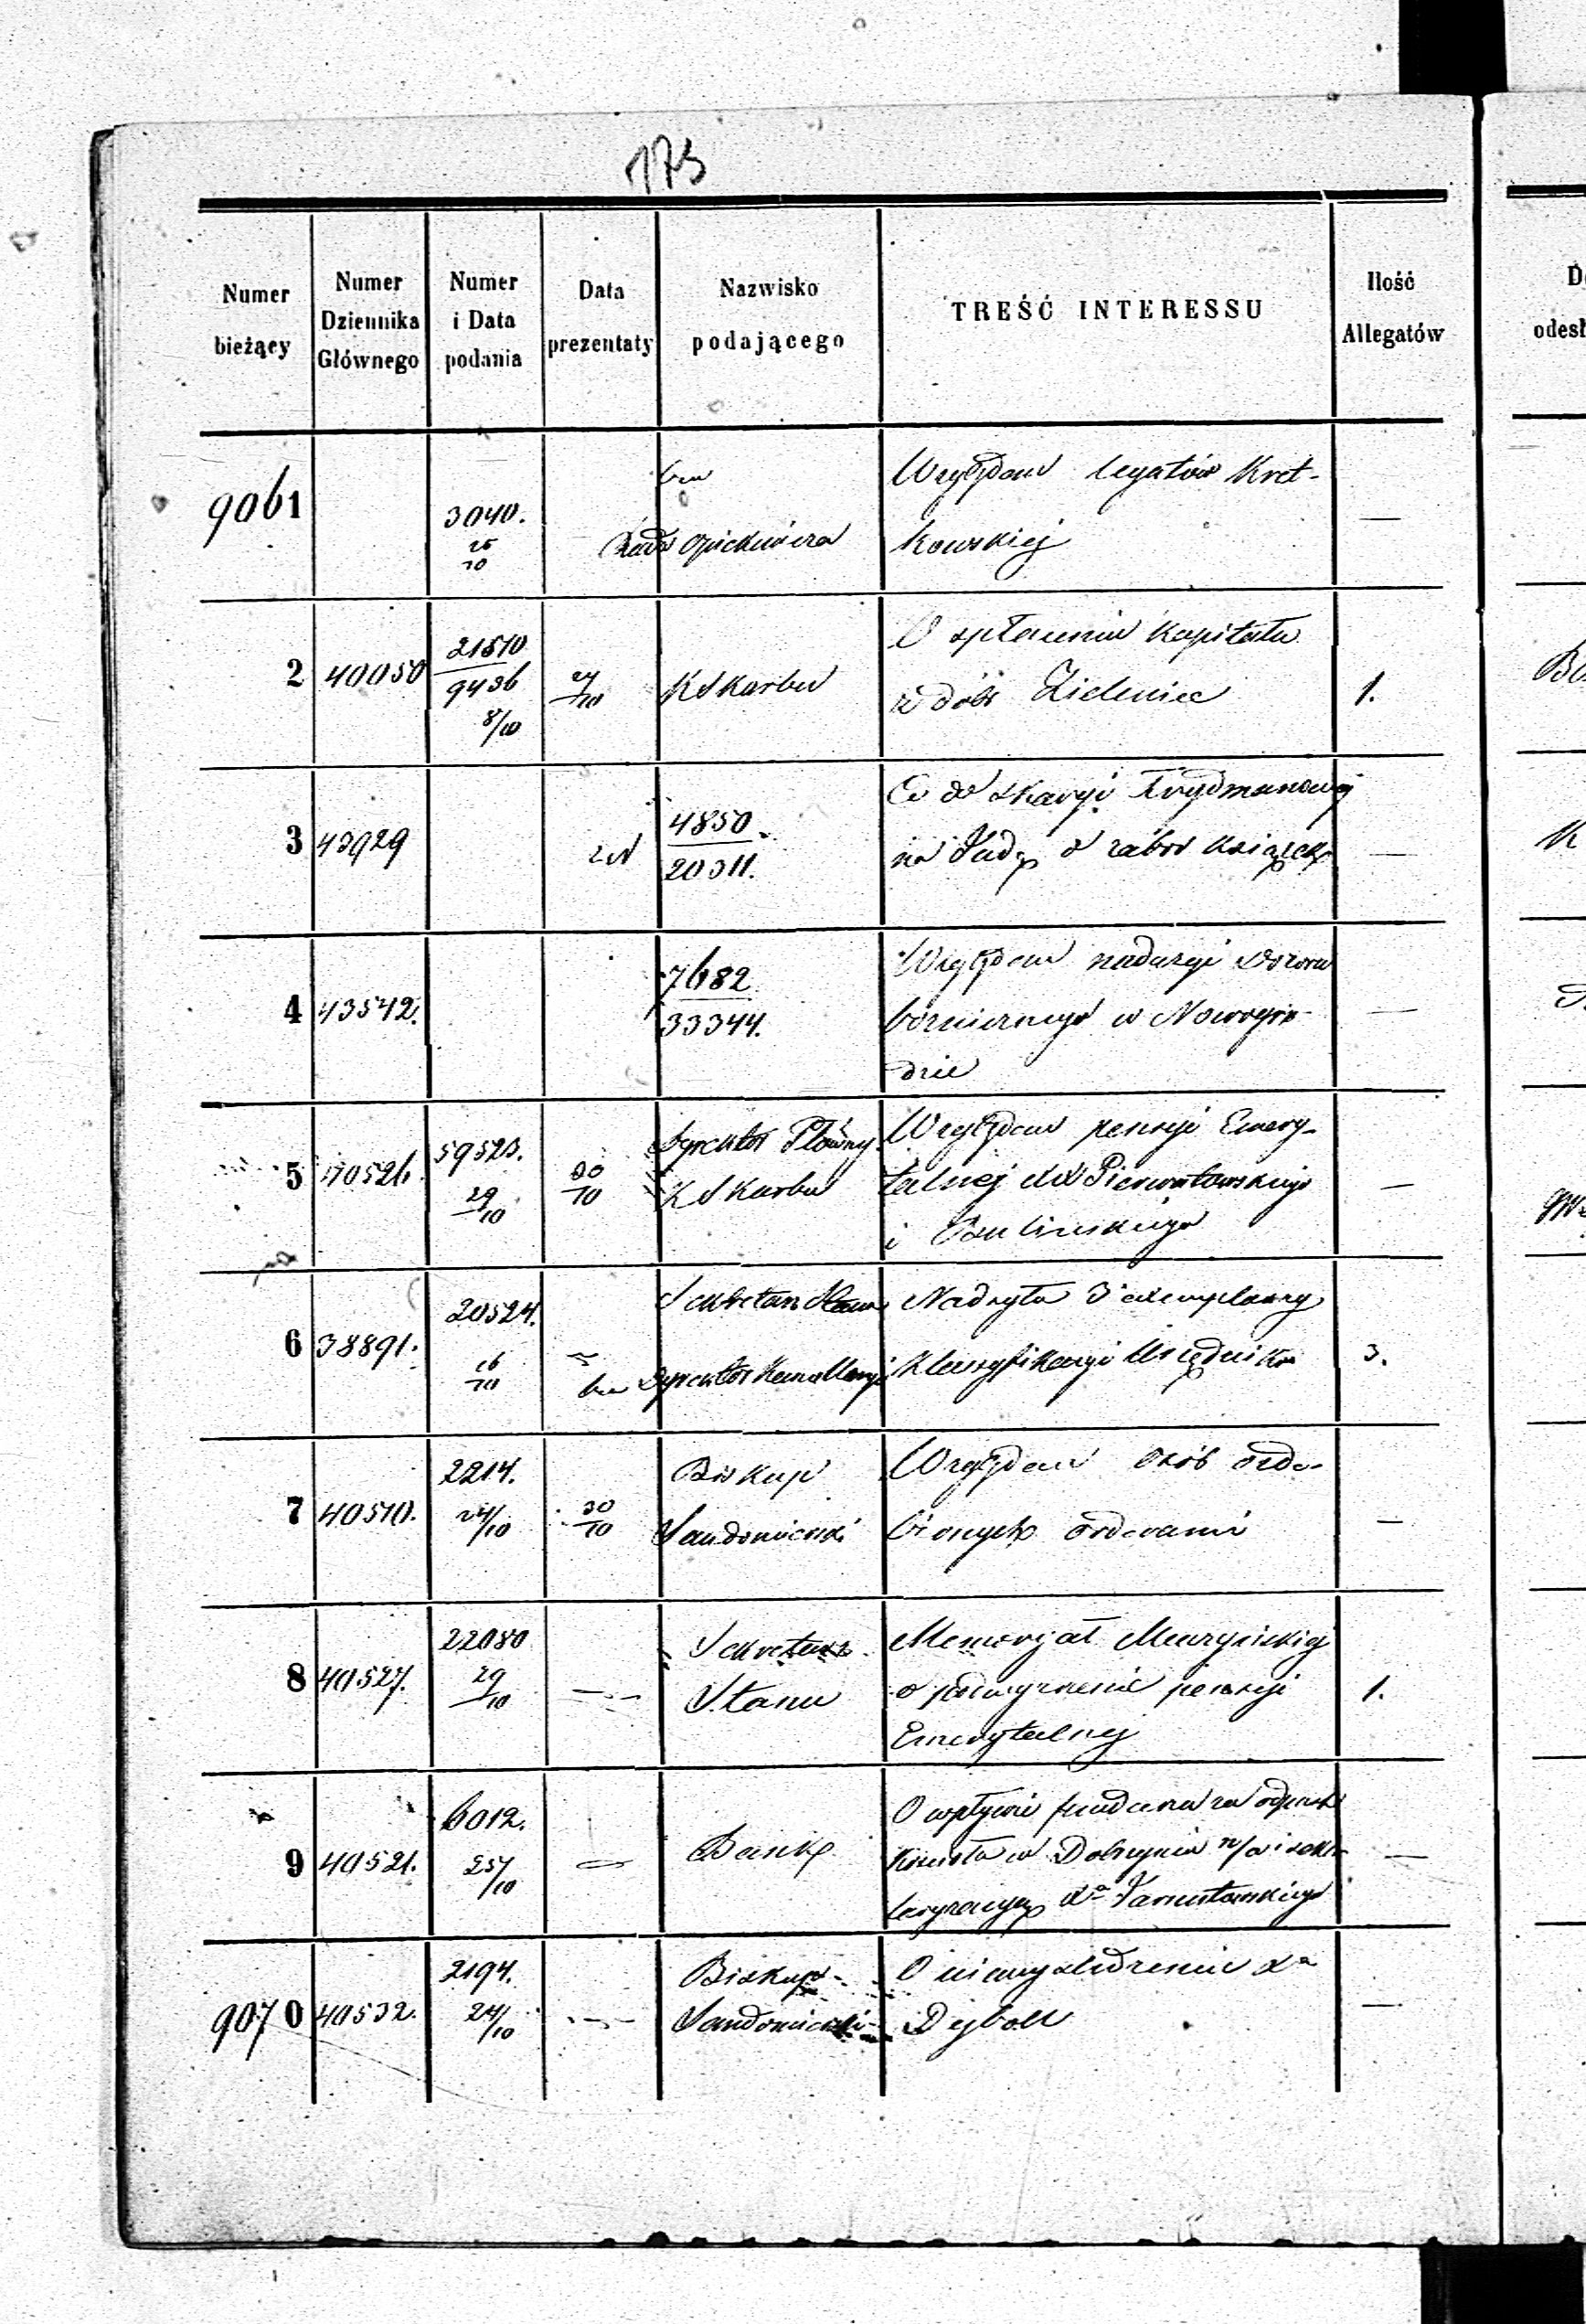 173
Numer bieżący
Numer Dziennika Głównego
Numer i Data podania
Data prezentaty
Nazwisko podającego
TREŚĆ INTERESSU
Ilość Allegatów
9061
3040.
26/10
Rada Opiekuńcza
Względem legatów Kret-
kowskiej
—
2
40050
21510
9436
8/10
27/10
K S Karbu
O spłaceniu Kapitału
z dóbr Zieleniec
1.
3
43929
4850
20311.
Co do skargi Frydmanowej
na Sudę o zabór książek
—
4
43542.
7682
33344.
Względem nadużyć dozoru
bóżniczego w Nowogro-
dzie
—
5
40526.
59523.
29/10
30/10
Dyrektor Główny
K S Karbu
Względem pensyi Emery-
talnej dla Pierwołowskiego
i
—
6
38891.
20524.
26/10
Sekretarz Stanu
Dyrektor Kancellaryi
Nadsyła 3 exemplarzy
Klassyfikacyi Urzędników
3.
7
40510.
2214.
24/10
30/10
Biskup
Sandomierski
Względem osób ozdo-
bionych orderami
—
8
40527.
22080
29/10
Sekretarz
Stanu
Memoryał Muszyńskiej
o podwyższenie pensyi
Emerytalnej
1.
9
40521.
6012.
25/10
Bank
O wpływie funduszu za odpust
Kościoła w Dobrzyniu n/W i sekula-
ryzacyę Xa Jarusławskiego
—
9070
40532.
2194.
24/10
Biskup
Sandomierski
O niewyśledzeniu Xa
Dybołł
—